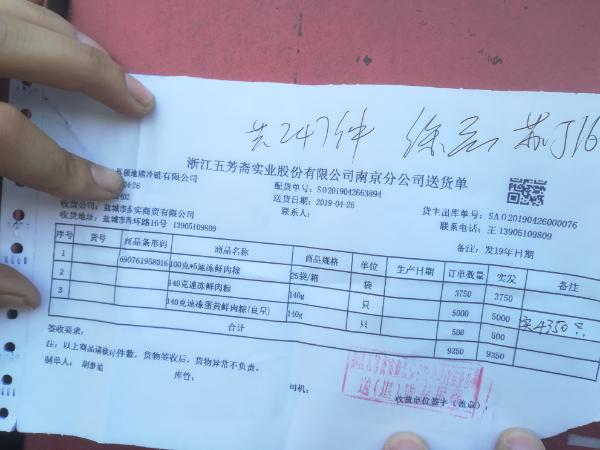 共247件 徐 苏J16
浙江五芳斋实业股份有限公司南京分公司送货单
极地熊冷链有限公司
04-26
配货单号：SO2019042663894
送货日期：2019-04-26
货主出库单号：SA020190426000076
收货公司：盐城市 实商贸有限公司
联系人：
联系电话：王 13905109809
收货地址：盐城市 环路16号 13905109809
备注：发19年日期
序号 货号 商品条形码 商品名称 商品规格 单位 生产日期 订单数量 实发 备注
1 690761958016 100克*5速冻鲜肉粽 25袋/箱 袋 3750 3750
2 140克速冻鲜肉粽 140g 只 5000 5000 实4350只
3 140克速冻蛋黄鲜肉粽(良品) 140g 只 500 500
合计 9250 9250
签收要求：
注：以上商品请核对件数，货物签收后，货物异常不负责。
制单人： 胡
库管：
司机：
收货单位签字（盖章）